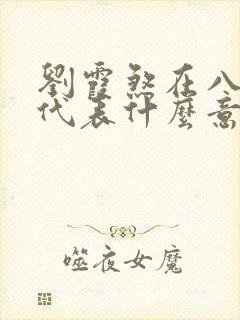 劉霞煞在八
代表什麼意
噬夜女魔